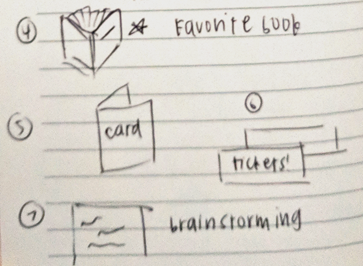 4 Favorite book
5 card
6
tickets'
7 brainstorming